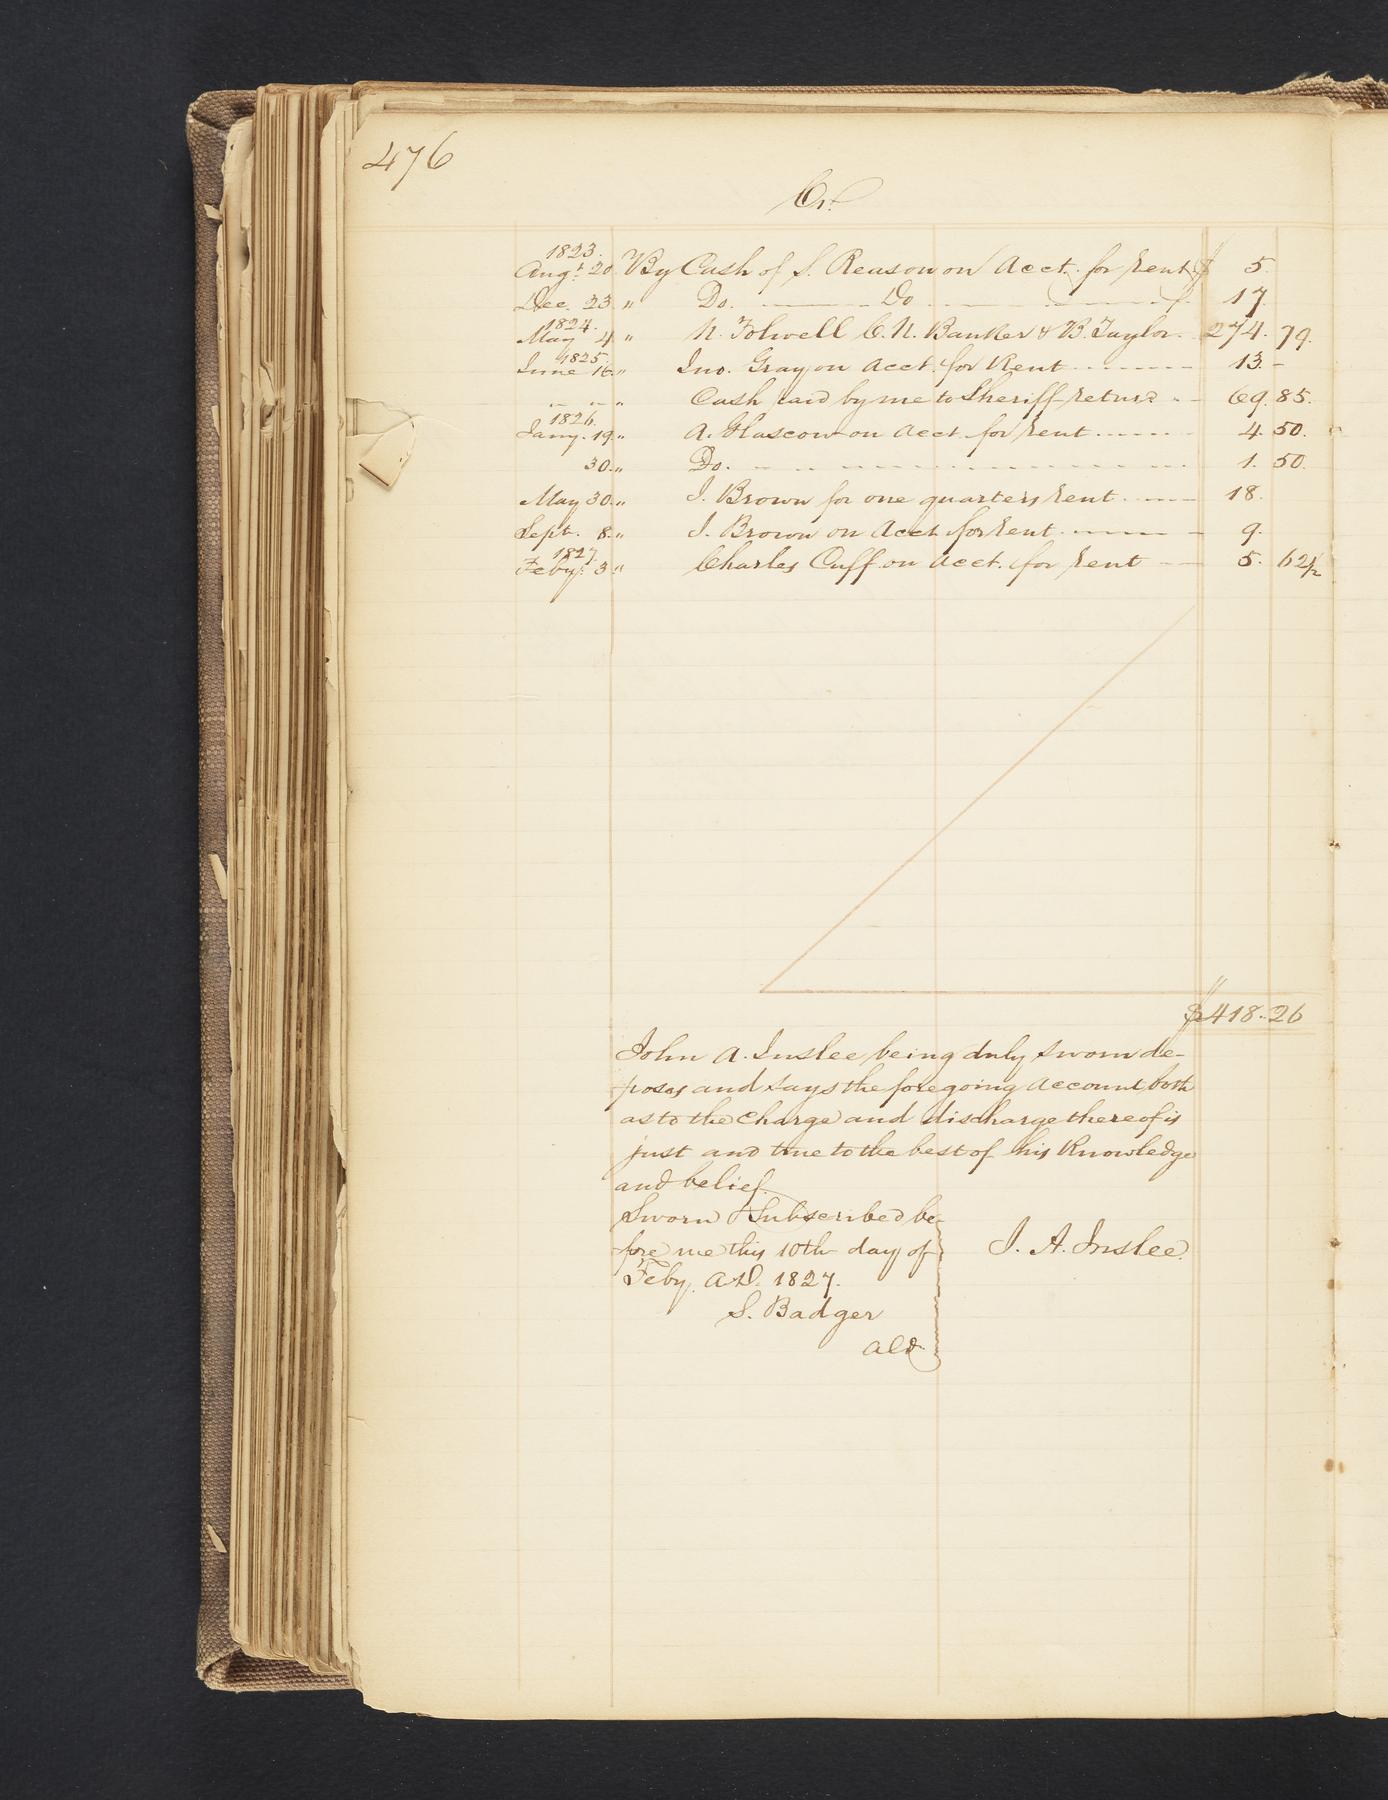 476
Cr.
1823.
Augt. 20. By Cash of S. Reason on Acct. for rent $ 5.
Dec. 23 " Do. Do 17.
1824.
May 4 " N. Folwell C. N. Banker & B. Taylor. 274. 79.
1825.
June 16. " Jno. Gray on Acct. for Rent 13. -
" " " Cash paid by me to Sheriff return 69. 85.
1826.
Jany. 19. " A. Glascow on Acct. for rent 4. 50.
30. " Do. 1. 50.
May 30. " I. Brown for one quarters rent 18.
Sept. 8. " I. Brown on Acct. for rent 9.
1827.
Feby. 3. " Charles Cuff on Acct. for rent 5. 62½
$418..26
John A. Inslee being duly sworn de-
poses and says the foregoing Account both
as to the charge and discharge thereof is
just and true to the best of his Knowledge
and belief.
Sworn & Subscribed be-
fore me this 10th day of
Feby. A.D. 1827.
I. A. Inslee.
S. Badger
Ald.